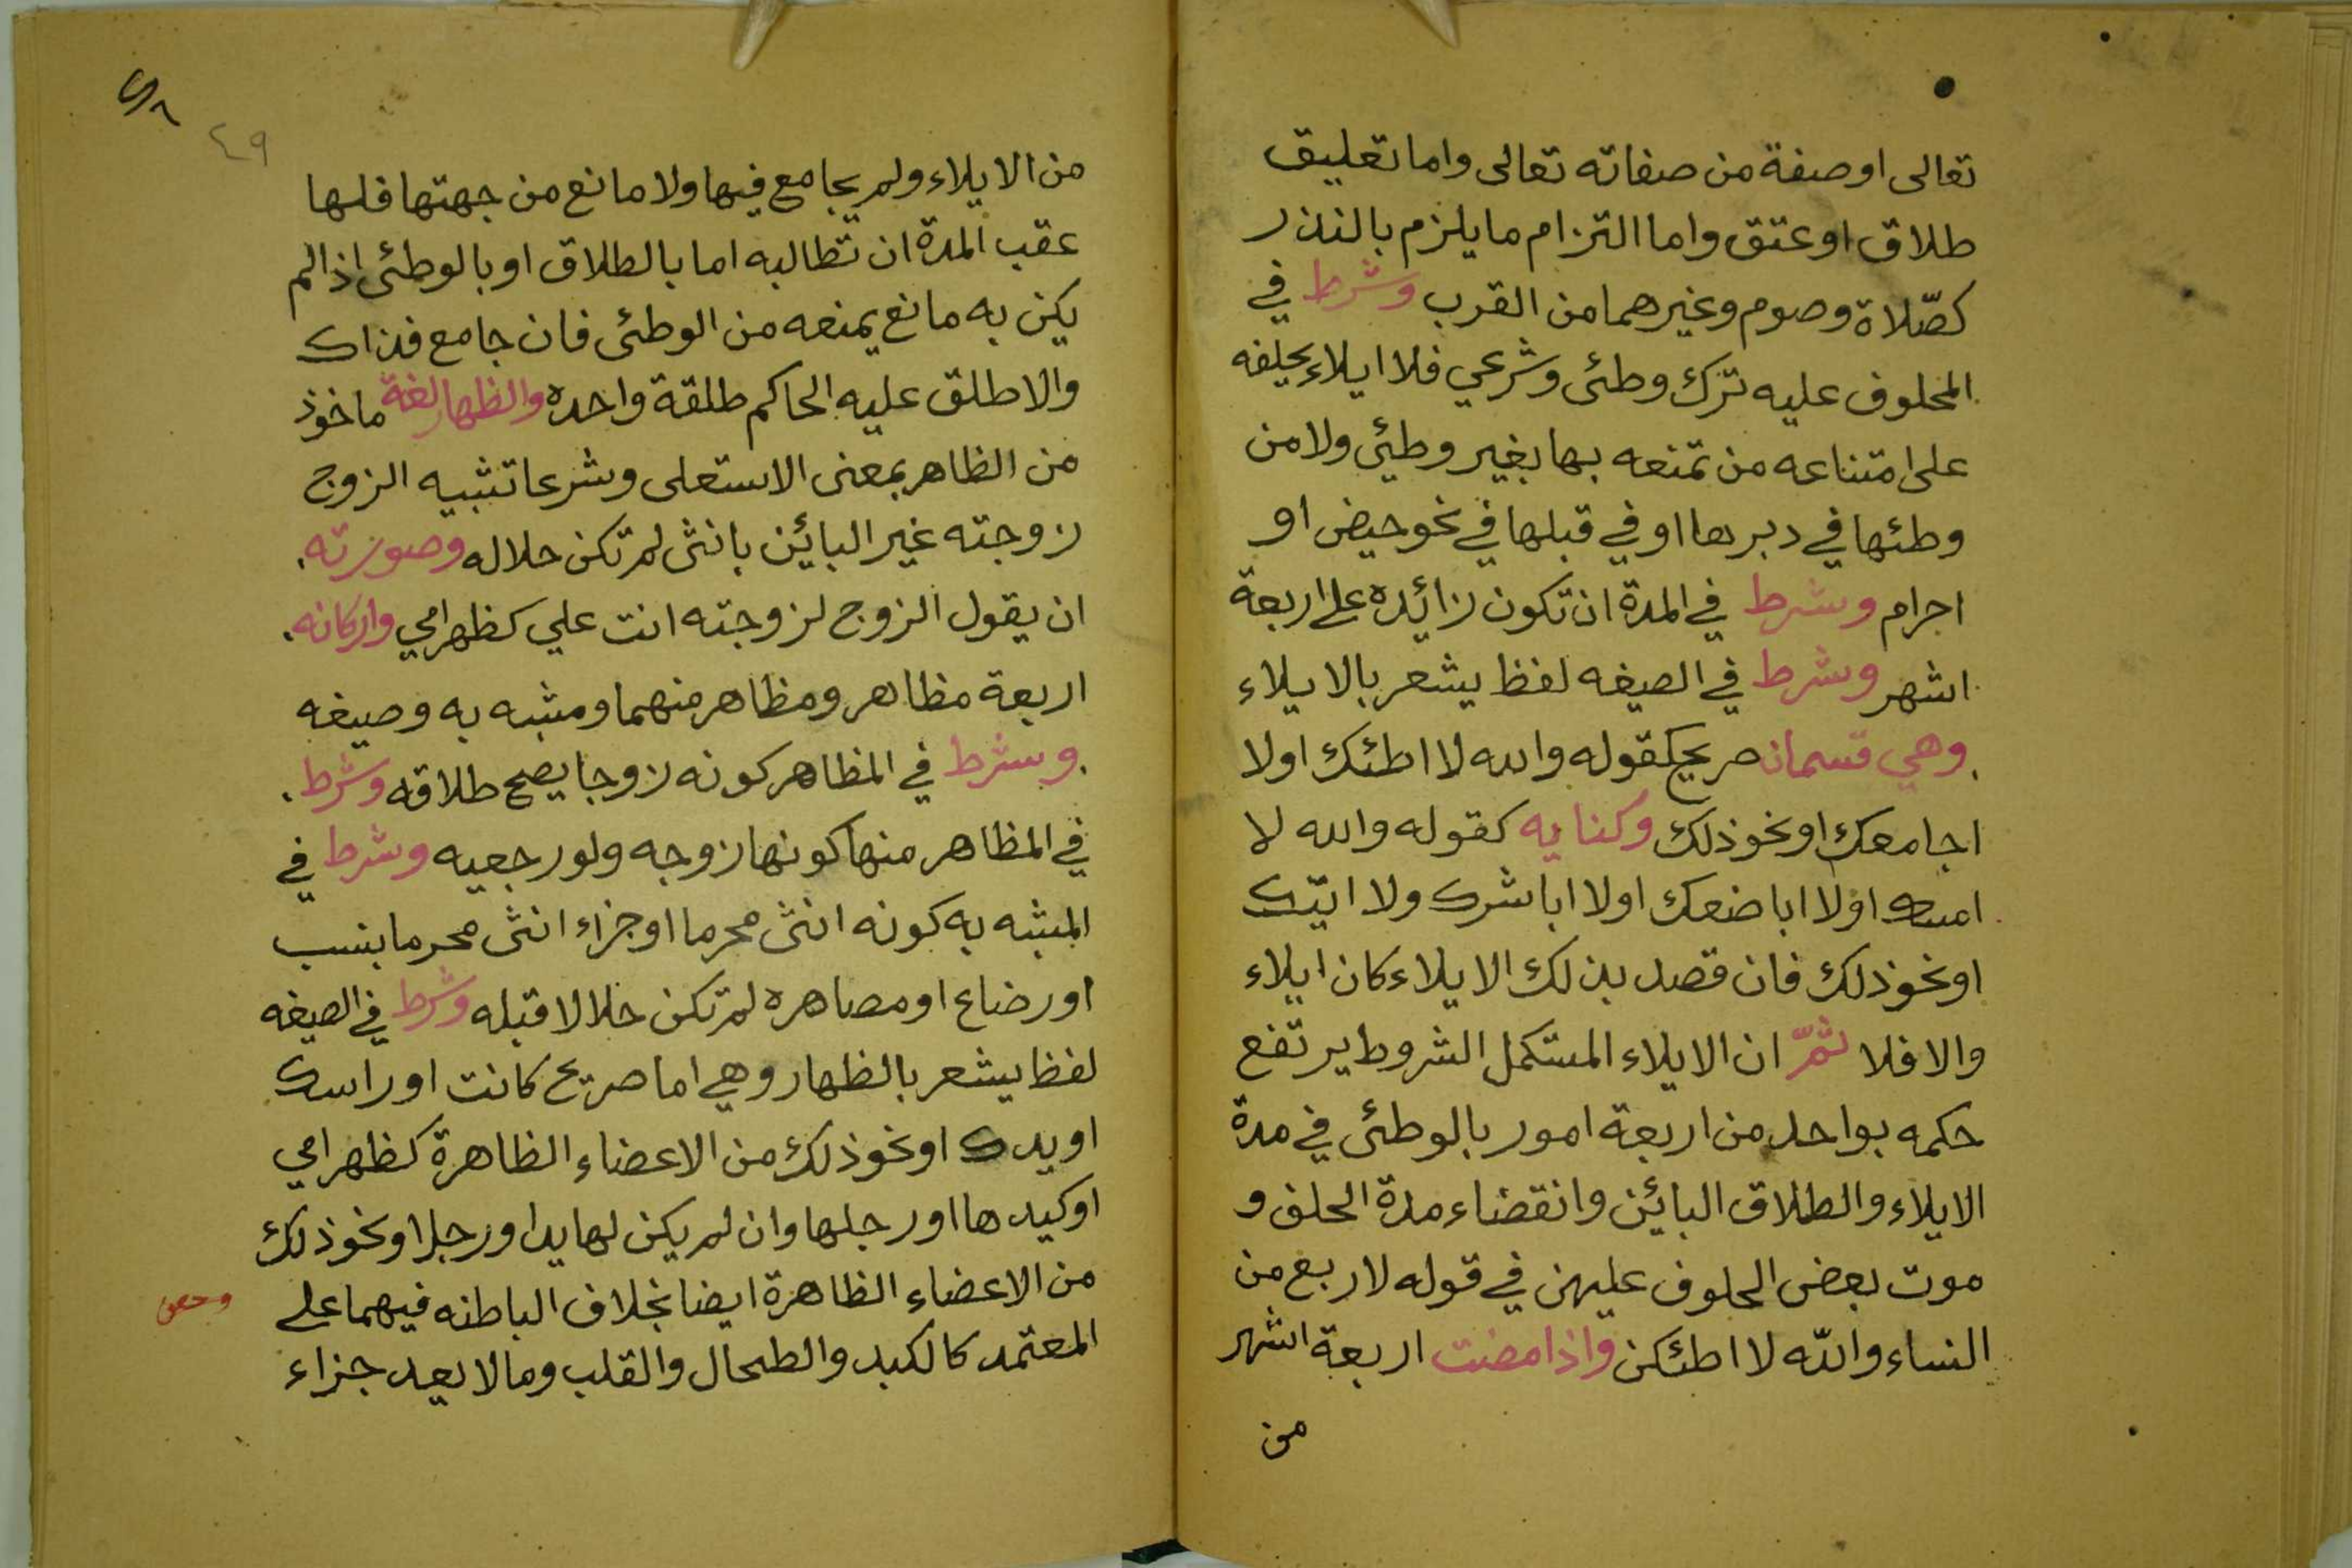 تعالى اوصفة من صفاته تعالى واما تعليق
طلاق اوعتق واما التزام مايلزم بالنذر
كصّلاة وصوم وغيرهما من القرب وشرط في
المحلوف عليه ترك وطئى وشرعي فلا ايلاء بحلفه
على امتناعه من تمتعه بها بغير وطئي ولا من
وطئها في دبرها او في قبلها في نحو حيض او
احرام وشرط في المدة ان تكون زائده على اربعة
اشهر وشرط في الصيغه لفظ يشعر بالايلاء
وهي قسمان صريح كقوله والله لا اطئك اولا
اجامعك او نحو ذلك وكنايه كقوله والله لا
امسك اولا اباضعك اولا اباشرك ولا اتيك
او نحو ذلك فان قصد بذلك الايلاء كان ايلاء
والا فلا ثمّ ان الايلاء المستكمل الشروط يرتفع
حكمه بواحد من اربعة امور بالوطئى في مدة
الايلاء والطلاق البائن وانقضاء مدة الحلف و
موت بعض المحلوف عليهن في قوله لاربع من
النساء والله لا اطئكن واذا مضت اربعة اشهر
من
٤٩
من الايلاء ولم يجامع فيها ولا مانع من جهتها فلها
عقب المدة ان تطالبه اما بالطلاق او بالوطئى اذا لم
يكن به مانع يمنعه من الوطئى فان جامع فذاك
والا طلق عليه الحاكم طلقة واحده والظهار لغة ماخوذ
من الظاهر بمعنى الاستعلى وشرعا تشبيه الزوج
زوجته غير البائن بانثى لم تكن حلاله وصورته
ان يقول الزوج لزوجته انت علي كظهر امي واركانه
اربعة مظاهر ومظاهر منهما ومشبه به وصيغه
وشرط في المظاهر كونه زوجا يصح طلاقه وشرط
في المظاهر منها كونها زوجه ولو رجعيه وشرط في
المشبه به كونه انثى محرما او جزاء انثى محرما بنسب
او رضاع او مصاهره لم تكن حلالا قبله وشرط في الصيغه
لفظ يشعر بالظهار وهي اما صريح كانت او راسك
او يدك او نحو ذلك من الاعضاء الظاهرة كظهر امي
او كيدها او رجلها وان لم يكن لها يدا ورجلا او نحو ذلك
من الاعضاء الظاهرة ايضا بخلاف الباطنه فيهما على
المعتمد كالكبد والطحال والقلب وما لا يعد جزاء